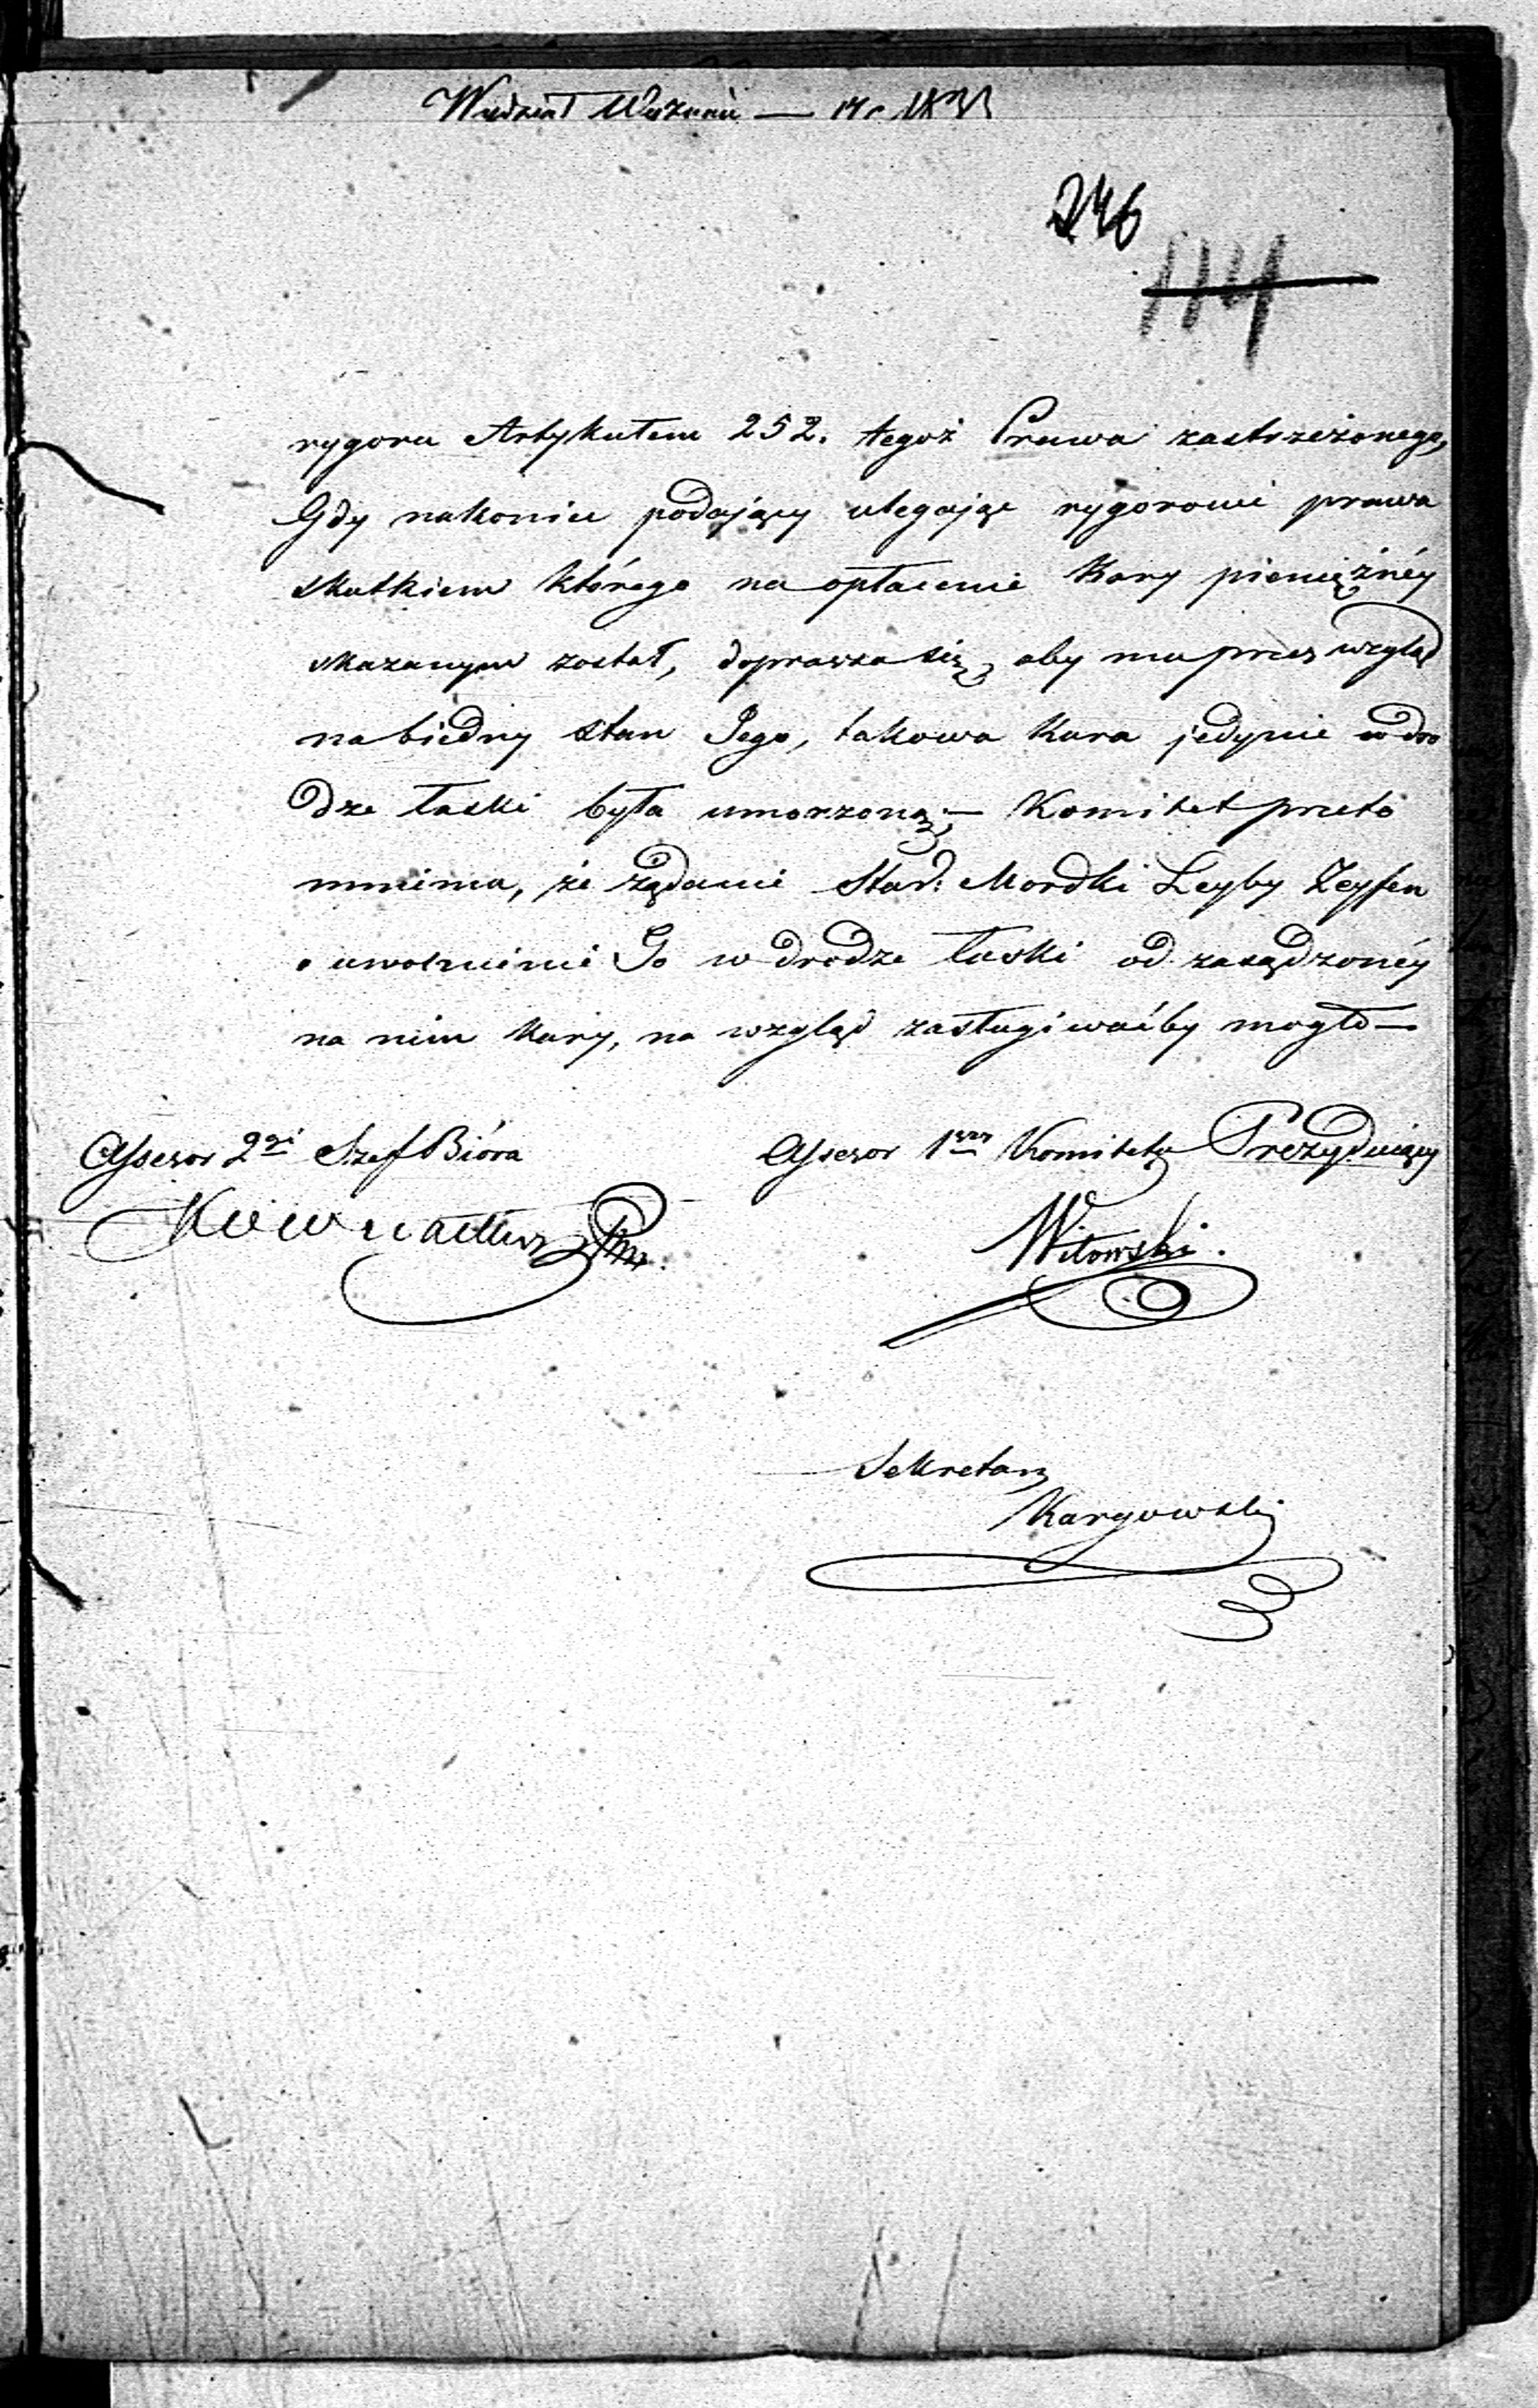 Wydział
246
114
rygoru Artykułem 252. tegoż Prawa zastrzeżonego,
Gdy nakoniec podający ulegając rygorowi prawa
skutkiem którego na opłacenie Kary pieniężnéy
skazanym został, doprasza się, aby mu przez wzgląd
na biedny stan Jego, takowa Kara jedynie w dro
dze łaski była umorzoną; — Komitet przeto
mniema, że żądanie Star: Mordki Leyby Zeyfen
o uwolnienie Go w drodze łaski od zasądzonéy
na nim Kary, na wzgląd zasługiwaćby mogło —
Assesor 2gi Szef Bióra
Assesor 1szy Komitetu Prezydujący
Witowski.
Sekretarz
Kargowski